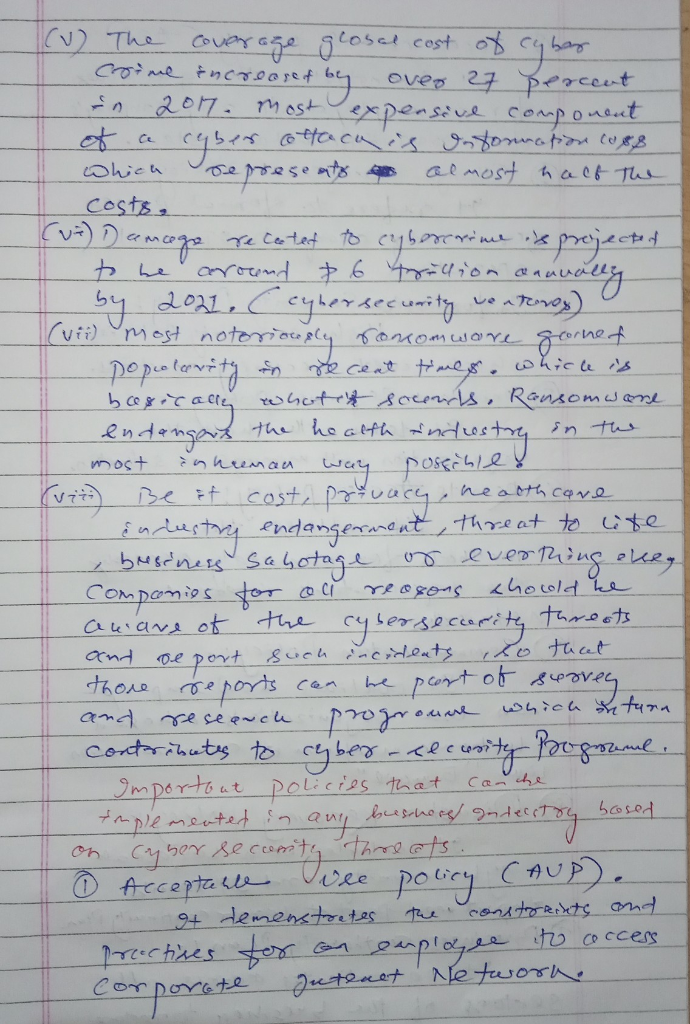 (v) The average global cost of cyber
crime increased by over 27 percent
in 2017. Most expensive component
of a cyber attack is information loss
which represents almost half the
costs.
(vi) Damage related to cybercrime is projected
to be around $ 6 trillion annually
by 2021. (cybersecurity ventures)
(vii) Most notoriously ransomware gained
popularity in recent times. which is
basically what it sounds. Ransomware
endangers the health industry in the
most inhuman way possible.
(viii) Be it cost, privacy, healthcare
industry endangerment, threat to life
, business sabotage or everything else,
Companies for all reasons should be
aware of the cybersecurity threats
and report such incidents, so that
those reports can be part of survey
and research programme which in turn
contributes to cyber-security Programme.
Important policies that can be
implemented in any business/industry based
on cyber security threats.
① Acceptable Use policy (AUP).
It demenstrates the constraints and
practises for an employee to access
corporate Internet Network.